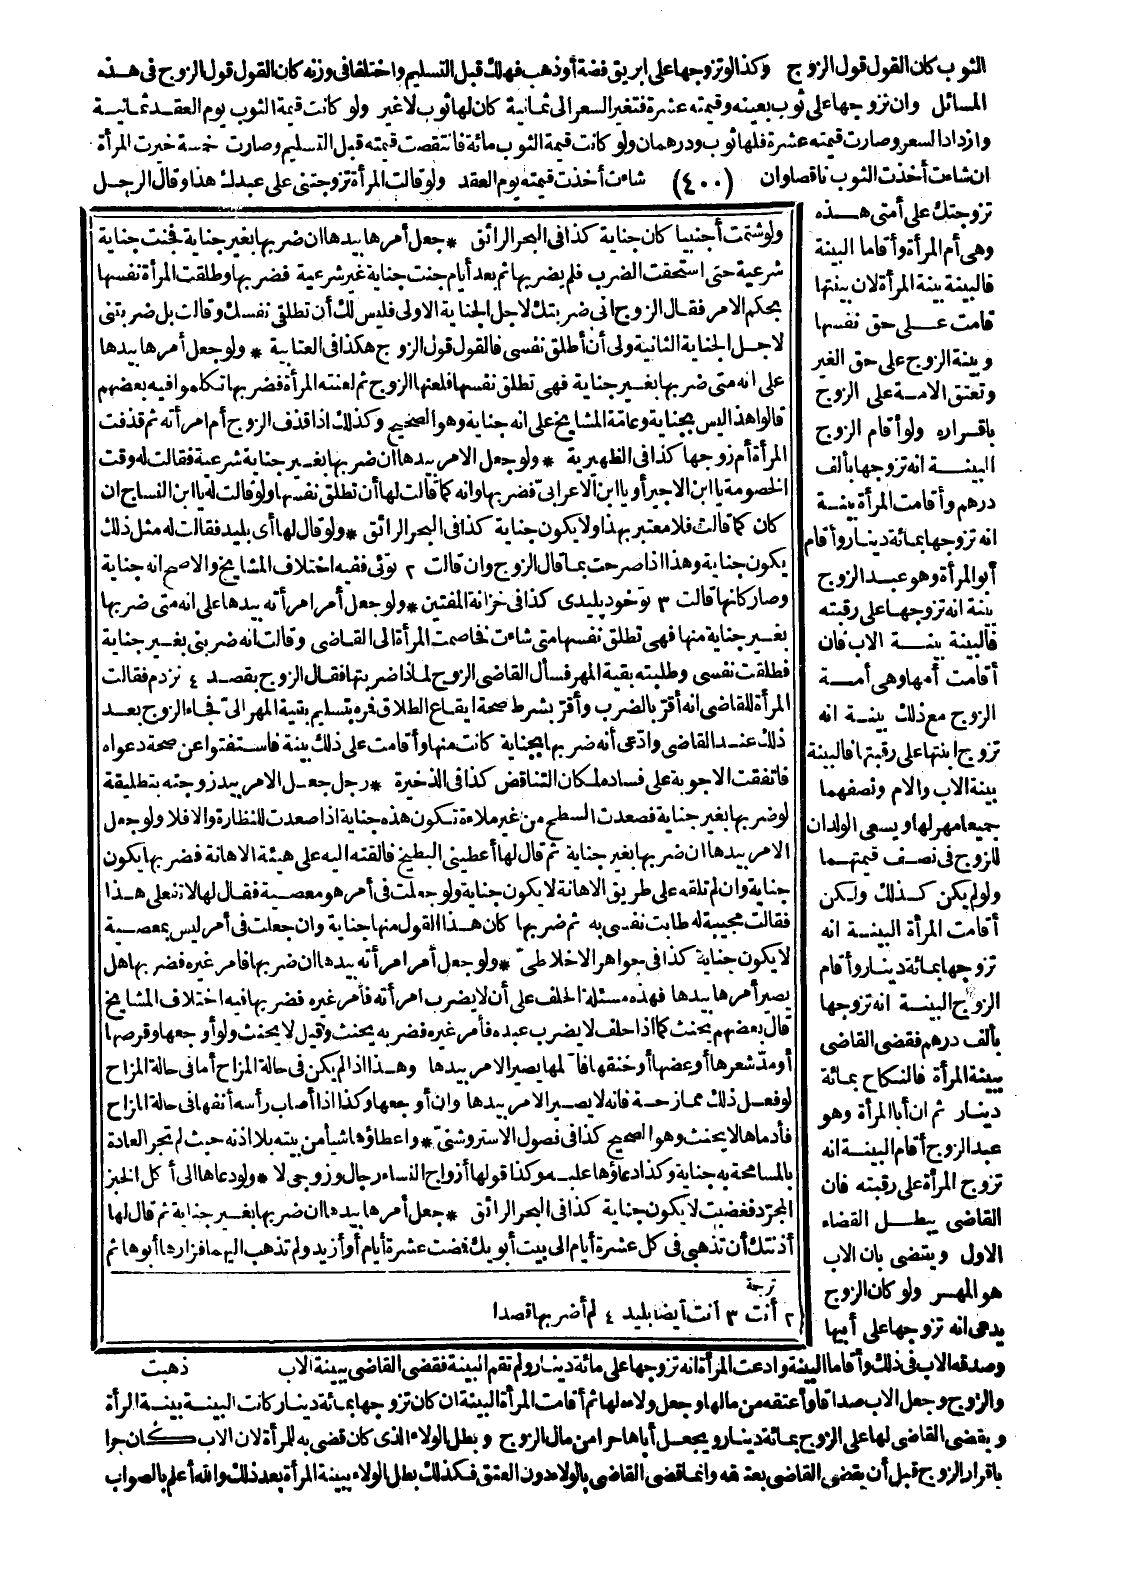 الثوب كان القول قول الزوج وكذا لو تزوجها على ابريق فضة أو ذهب فهلك قبل التسليم واختلفا فى وزنه كان القول قول الزوج فى هذه
المسائل وان تزوجها على ثوب بعينه وقيمته عشرة فتغير السعر الى ثمانية كان لها ثوب لا غير ولو كانت قيمة الثوب يوم العقد ثمانية
وازداد السعر وصارت قيمته عشرة فلها ثوب ودرهمان ولو كانت قيمة الثوب مائة فانتقصت قيمته قبل التسليم وصارت خمسة خيرت المرأة
ان شاءت أخذت الثوب ناقصا وان (٤٠٠) شاءت أخذت قيمته يوم العقد ولو قالت المرأة تزوجتنى على عبدك هذا وقال الرجل
تزوجتك على أمتى هذه
وهى أم المرأة وأقاما البينة
فالبينة بينة المرأة لان بينتها
قامت على حق نفسها
وبينة الزوج على حق الغير
وتعتق الامة على الزوج
باقراره ولو أقام الزوج
البينة انه تزوجها بألف
درهم وأقامت المرأة بينة
انه تزوجها بمائة دينار وأقام
أبو المرأة وهو عبد الزوج
بينة انه تزوجها على رقبته
فالبينة بينة الاب فان
أقامت أمها وهى أمة
الزوج مع ذلك بينة انه
تزوج ابنتها على رقبتها فالبينة
بينة الاب والام ونصفهما
جميعا مهر لها ويسعى الوالدان
للزوج فى نصف قيمتهما
ولو لم يكن كذلك ولكن
أقامت المرأة البينة انه
تزوجها بمائة دينار وأقام
الزوج البينة انه تزوجها
بألف درهم فقضى القاضى
ببينة المرأة فالنكاح بمائة
دينار ثم ان أبا المرأة وهو
عبد الزوج أقام البينة انه
تزوج المرأة على رقبته فان
القاضى يبطل القضاء
الاول ويقضى بان الاب
هو المهر ولو كان الزوج
يدعى انه تزوجها على أبيها
وصدقه الاب فى ذلك وأقاما البينة وادعت المرأة انه تزوجها على مائة دينار ولم تقم البينة فقضى القاضى ببينة الاب
والزوج وجعل الاب صداقا وأعتقه من مالها وجعل ولاءه لها ثم أقامت المرأة البينة ان كان تزوجها بمائة دينار كانت البينة بينة المرأة
ويقضى القاضى لها على الزوج بمائة دينار ويجعل أباها حرا من مال الزوج وبطل الولاء الذى كان قضى به للمرأة لان الاب كان حرا
باقرار الزوج قبل أن يقضى القاضى بعتقه وانما قضى القاضى بالولاء دون العتق فكذلك بطل الولاء ببينة المرأة بعد ذلك والله أعلم بالصواب
ولو شتمت أجنبيا كان جناية كذا فى البحر الرائق * جعل أمرها بيدها ان ضربها بغير جناية فجنت جناية
شرعية حتى استحقت الضرب فلم يضربها ثم بعد أيام جنت جناية غير شرعية فضربها وطلقت المرأة نفسها
بحكم الامر فقال الزوج انى ضربتك لاجل الجناية الاولى فليس لك أن تطلقى نفسك وقالت بل ضربتنى
لاجل الجناية الثانية ولى أن أطلق نفسى فالقول قول الزوج هكذا فى العتابية * ولو جعل أمرها بيدها
على انه متى ضربها بغير جناية فهى تطلق نفسها فلعنها الزوج ثم لعنته المرأة فضربها تكلموا فيه بعضهم
قالوا هذا ليس بجناية وعامة المشايخ على انه جناية وهو الصحيح وكذلك اذا قذف الزوج أم امرأته ثم قذفت
المرأة أم زوجها كذا فى الظهيرية * ولو جعل الامر بيدها ان ضربها بغير جناية شرعية فقالت له وقت
الخصومة يا ابن الاجير أو يا ابن الاعرابى فضربها وانه كما قالت لها أن تطلق نفسها ولو قالت له يا ابن النساج ان
كان كما قالت فلا معتبر بهذا ولا يكون جناية كذا فى البحر الرائق * ولو قال لها أى بليد فقالت له مثل ذلك
يكون جناية وهذا اذا صرحت بما قال الزوج وان قالت ٢ توئى ففيه اختلاف المشايخ والاصح انه جناية
وصار كأنها قالت ٣ توخود بليدى كذا فى خزانة المفتين * ولو جعل أمر امرأته بيدها على انه متى ضربها
بغير جناية منها فهى تطلق نفسها متى شاءت فخاصمت المرأة الى القاضى وقالت انه ضربنى بغير جناية
فطلقت نفسى وطلبته بقية المهر فسأل القاضى الزوج لماذا ضربتها فقال الزوج بقصد ٤ نزدم فقالت
المرأة للقاضى انه أقر بالضرب وأقر بشرط صحة ايقاع الطلاق فمره بتسليم بقية المهر الى فجاء الزوج بعد
ذلك عند القاضى وادعى أنه ضربها بجناية كانت منها وأقامت على ذلك بينة فاستفتوا عن صحة دعواه
فاتفقت الاجوبة على فسادها لمكان التناقض كذا فى الذخيرة * رجل جعل الامر بيد زوجته بتطليقة
لو ضربها بغير جناية فصعدت السطح من غير ملاءة تكون هذه جناية اذا صعدت للنظارة والا فلا ولو جعل
الامر بيدها ان ضربها بغير جناية ثم قال لها أعطينى البطيخ فالقته اليه على هيئة الاهانة فضربها يكون
جناية وان لم تلقه على طريق الاهانة لا يكون جناية ولو جعلت فى أمر هو معصية فقال لها لا تفعلى هذا
فقالت مجيبة له طابت نفسى به ثم ضربها كان هذا القول منها جناية وان جعلت فى أمر ليس بمعصية
لا يكون جناية كذا فى جواهر الاخلاطى * ولو جعل أمر امرأته بيدها ان ضربها فامر غيره فضربها هل
يصير أمرها بيدها فهذه مسئلة الحلف على أن لا يضرب امرأته فأمر غيره فضربها فيه اختلاف المشايخ
قال بعضهم يحنث كما اذا حلف لا يضرب عبده فأمر غيره فضربه يحنث وقيل لا يحنث ولو أوجعها وقرصها
أو مد شعرها أو عضها أو خنقها فآلمها يصير الامر بيدها وهذا اذا لم يكن فى حالة المزاح أما فى حالة المزاح
لو فعل ذلك ممازحة فانه لا يصير الامر بيدها وان أوجعها وكذا اذا أصاب رأسه أنفها فى حالة المزاح
فأدماها لا يحنث وهو الصحيح كذا فى فصول الاستروشنى * واعطاؤها شيأ من بيته بلا اذنه حيث لم تجر العادة
بالمسامحة به جناية وكذا دعاؤها عليه وكذا قولها أزواج النساء رجال وزوجى لا * ولو دعاها الى أكل الخبز
المجرد فغضبت لا يكون جناية كذا فى البحر الرائق * جعل أمرها بيدها ان ضربها بغير جناية ثم قال لها
أذنتك أن تذهبى فى كل عشرة أيام الى بيت أبويك فمضت عشرة أيام أو أزيد ولم تذهب اليهما فزارها أبوها ثم
ترجمة
٢ أنت ٣ أنت أيضا بليد ٤ لم أضربها قصدا
ذهبت